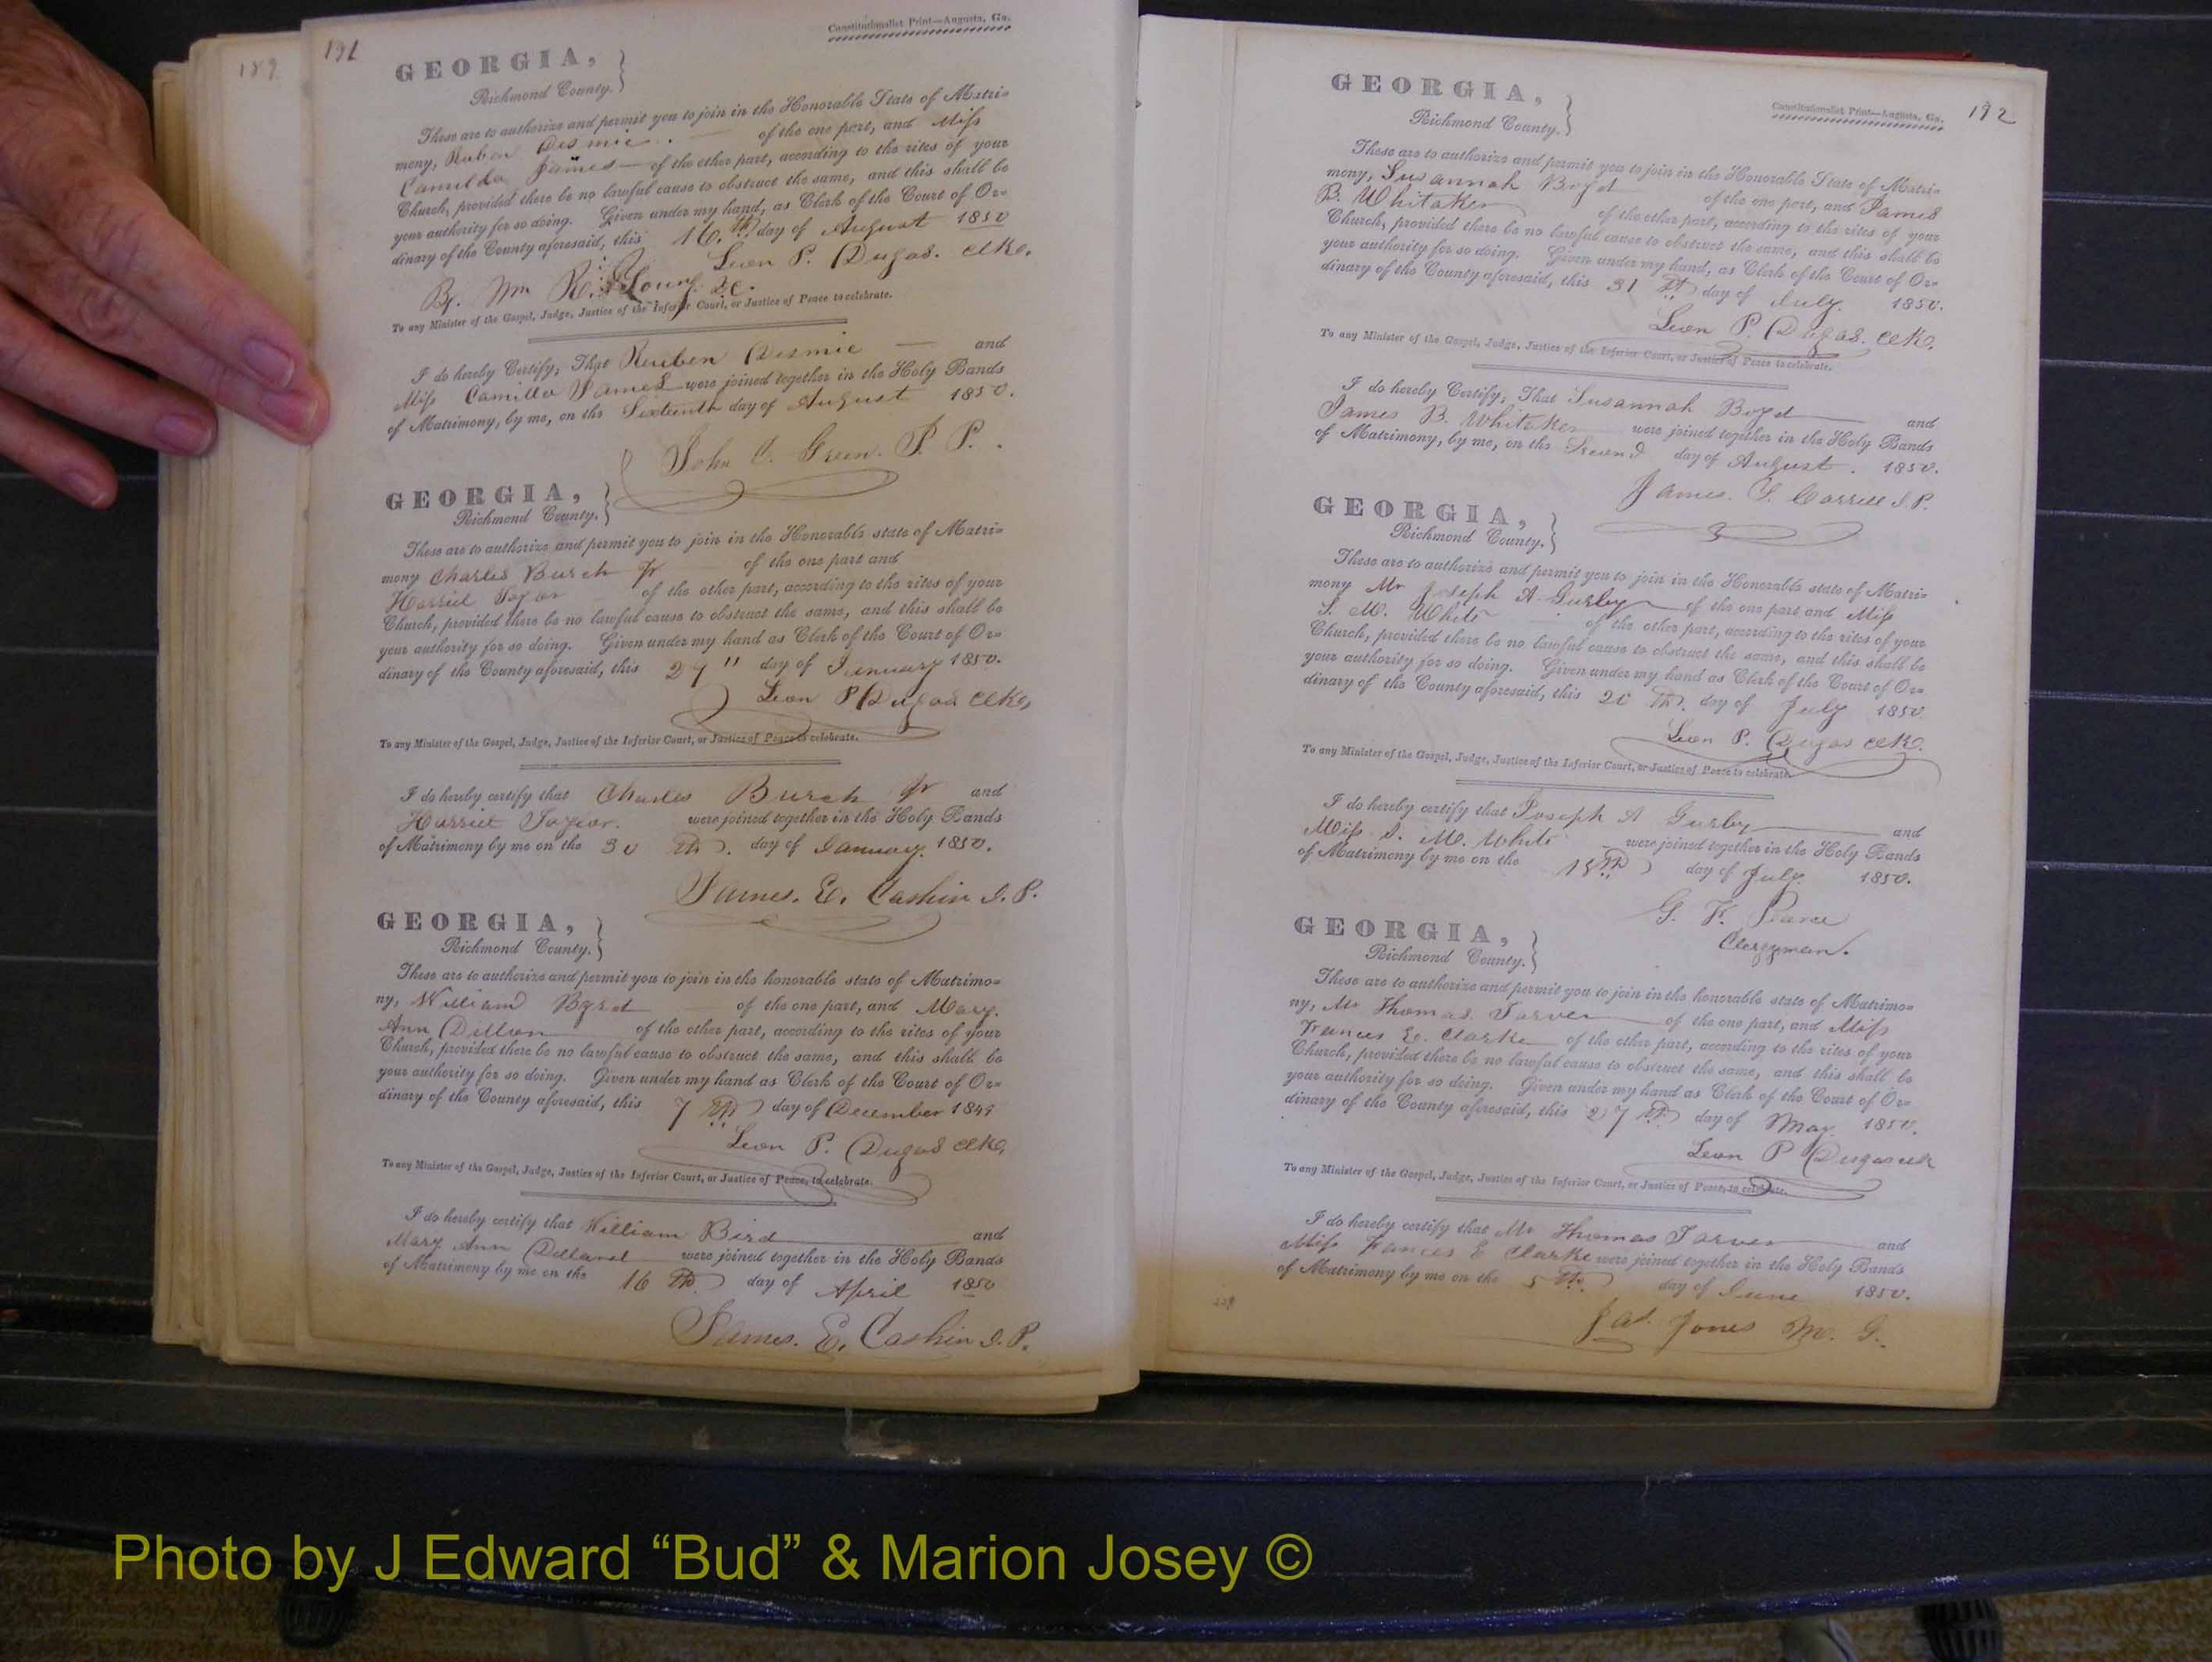 189
191
Constitutionalist Print—Augusta, Ga.
GEORGIA,
Richmond County.
These are to authorize and permit you to join in the Honorable State of Matri-
mony, Ruben Desmie of the one part, and Miss
Camilla James of the other part, according to the rites of your
Church, provided there be no lawful cause to obstruct the same, and this shall be
your authority for so doing. Given under my hand, as Clerk of the Court of Or-
dinary of the County aforesaid, this 16th day of August 1850
Leon P. Dugas. Clk.
By. Wm R.
To any Minister of the Gospel, Judge, Justice of the Inferior Court, or Justice of Peace to celebrate.
I do hereby Certify, That Reuben Desmie and
Miss Camilla James were joined together in the Holy Bands
of Matrimony, by me, on the Sixteenth day of August 1850.
John C. Green. J. P.
GEORGIA,
Richmond County.
These are to authorize and permit you to join in the Honorable state of Matri-
mony Charles Burch Jr of the one part and
Harriet Taylor of the other part, according to the rites of your
Church, provided there be no lawful cause to obstruct the same, and this shall be
your authority for so doing. Given under my hand as Clerk of the Court of Or-
dinary of the County aforesaid, this 29" day of January 1850.
Leon P Dugas Clk,
To any Minister of the Gospel, Judge, Justice of the Inferior Court, or Justice of Peace to celebrate.
I do hereby certify that Charles Burch Jr and
Harriet Taylor. were joined together in the Holy Bands
of Matrimony by me on the 30 th. day of January. 1850.
James. E. Cashin J. P.
GEORGIA,
Richmond County.
These are to authorize and permit you to join in the honorable state of Matrimo-
ny, William Byrd of the one part, and Mary.
Ann Dillon of the other part, according to the rites of your
Church, provided there be no lawful cause to obstruct the same, and this shall be
your authority for so doing. Given under my hand as Clerk of the Court of Or-
dinary of the County aforesaid, this 7th day of December 1849
Leon P. Dugas Clk,
To any Minister of the Gospel, Judge, Justice of the Inferior Court, or Justice of Peace, to celebrate.
I do hereby certify that William Bird and
Mary Ann Delland were joined together in the Holy Bands
of Matrimony by me on the 16th day of April 1850
James. E. Cashin J. P.
192
Constitutionalist Print—Augusta, Ga.
GEORGIA,
Richmond County.
These are to authorize and permit you to join in the Honorable State of Matri-
mony, Susannah Boyd of the one part, and James
B. Whitaker of the other part, according to the rites of your
Church, provided there be no lawful cause to obstruct the same, and this shall be
your authority for so doing. Given under my hand, as Clerk of the Court of Or-
dinary of the County aforesaid, this 31 st day of July. 1850.
Leon P. Dugas. Clk.
To any Minister of the Gospel, Judge, Justice of the Inferior Court, or Justice of Peace to celebrate.
I do hereby Certify, That Susannah Boyd and
James B. Whitaker were joined together in the Holy Bands
of Matrimony, by me, on the Second day of August. 1850.
James. J. P.
GEORGIA,
Richmond County.
These are to authorize and permit you to join in the Honorable state of Matri-
mony Mr Joseph A Gurley of the one part and Miss
S. M. White of the other part, according to the rites of your
Church, provided there be no lawful cause to obstruct the same, and this shall be
your authority for so doing. Given under my hand as Clerk of the Court of Or-
dinary of the County aforesaid, this th. day of July 1850
Leon P. Dugas Clk.
To any Minister of the Gospel, Judge, Justice of the Inferior Court, or Justice of Peace to celebrate.
I do hereby certify that Joseph A Gurley and
Miss S. M. White were joined together in the Holy Bands
of Matrimony by me on the th day of July. 1850.
G. F. Pierce
Clergyman.
GEORGIA,
Richmond County.
These are to authorize and permit you to join in the honorable state of Matrimo-
ny, Mr Thomas. Tarver of the one part, and Miss
Frances E. Clarke of the other part, according to the rites of your
Church, provided there be no lawful cause to obstruct the same, and this shall be
your authority for so doing. Given under my hand as Clerk of the Court of Or-
dinary of the County aforesaid, this 27th day of May. 1850.
Leon P Dugas clk
To any Minister of the Gospel, Judge, Justice of the Inferior Court, or Justice of Peace, to celebrate.
I do hereby certify that Mr Thomas Tarver and
Miss Frances E Clarke were joined together in the Holy Bands
of Matrimony by me on the 5th day of June 1850.
Jas. Jones M. G.
Photo by J Edward “Bud” & Marion Josey ©